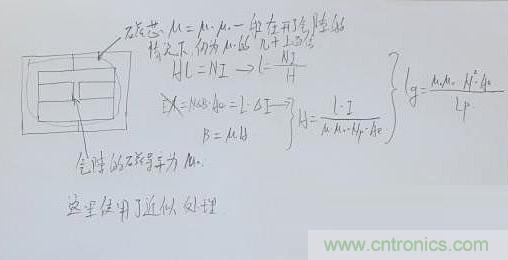 磁芯 μ = μᵣ·μ₀ 一般在开了气隙的
情况下,仍为μ₀的几十上百倍
Hl = NI → l = NI/H
EΔt = N·ΔB·Ae = L·ΔI →
B = μH
H = L·I/(μᵣ·μ₀·Np·Ae)
lg = μᵣ·μ₀·N²·Ae/Lp
气隙的磁导率为μ₀
这里使用了近似处理
电子元件技术网
www.cntronics.com